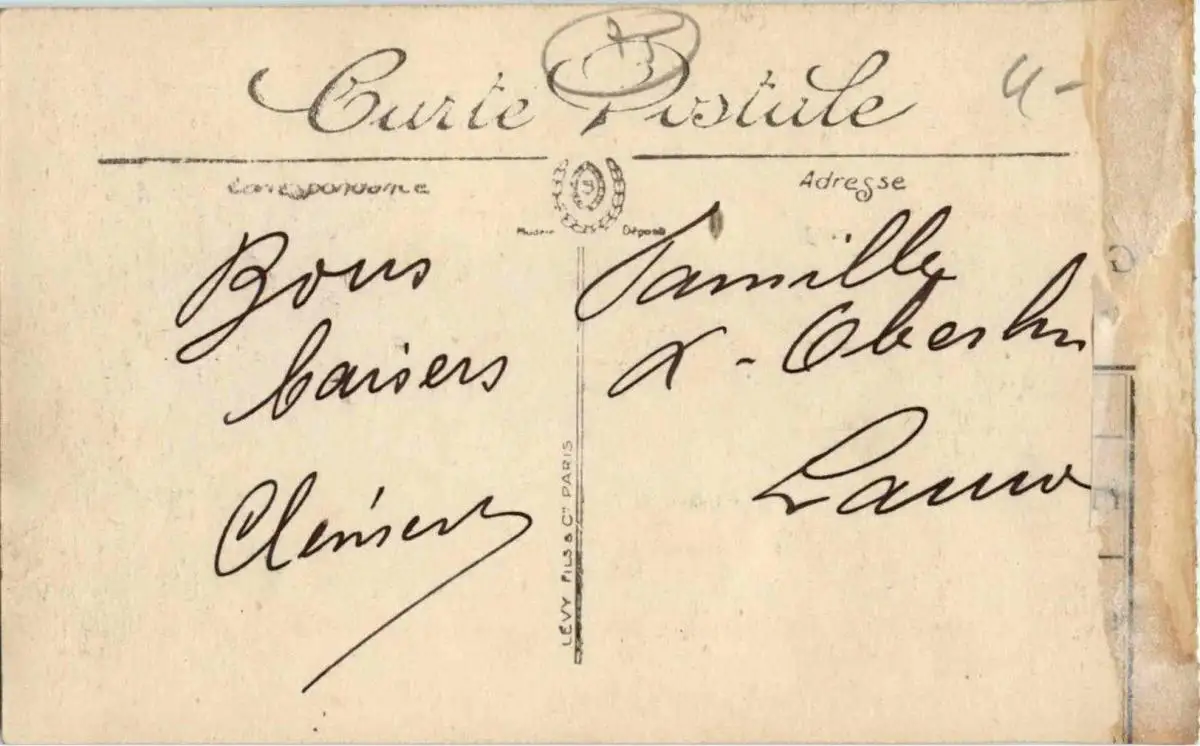 Carte Postale
4-
Correspondance
Adresse
Modèle Déposé
Bons
baisers
Clément
Famille
X - Oberlin
LÉVY FILS & Cie PARIS